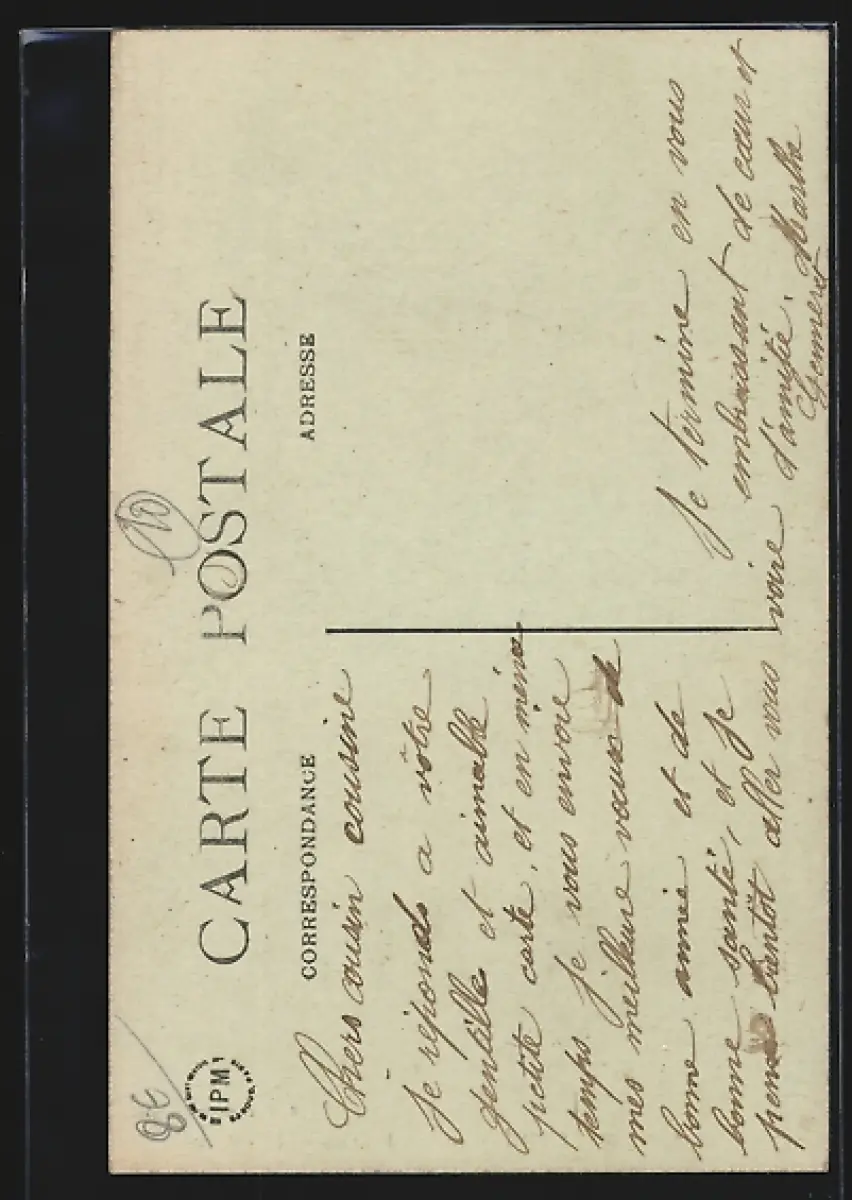 CARTE POSTALE
CORRESPONDANCE
ADRESSE
IPM
Chers cousin cousine
Je réponds a vôtre
gentille et aimable
petite carte, et en même
temps je vous envoie
mes meilleure vœux de
bonne année et de
bonne santé, et je
pense bientôt aller vous voire
Je termine en vous
embrassant de cœur et
d'amitié. Marthe